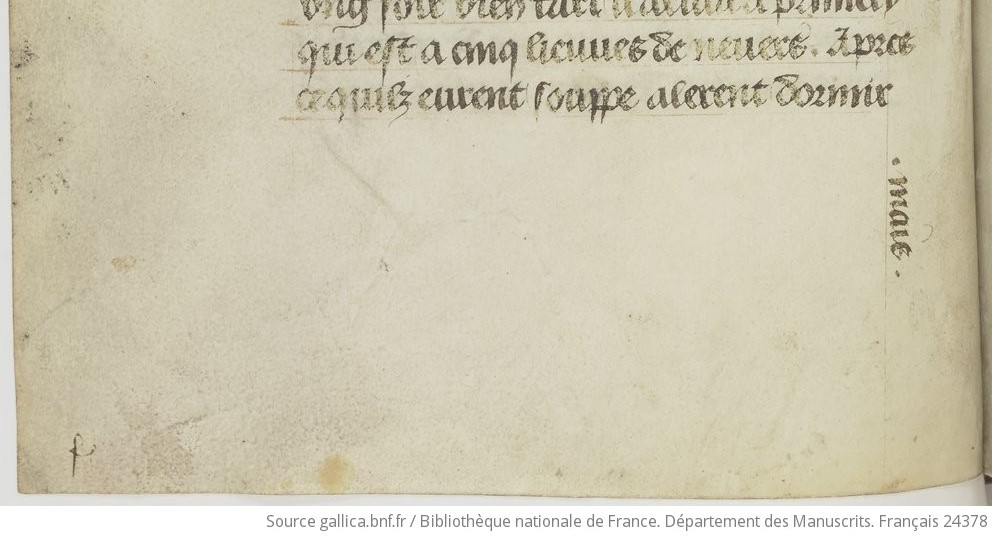 ung soir bien tart
qui est a cinq lieuues de neuers. Apres
ce quilz eurent souppe alerent dormir
. mais .
Source gallica.bnf.fr / Bibliothèque nationale de France. Département des Manuscrits. Français 24378